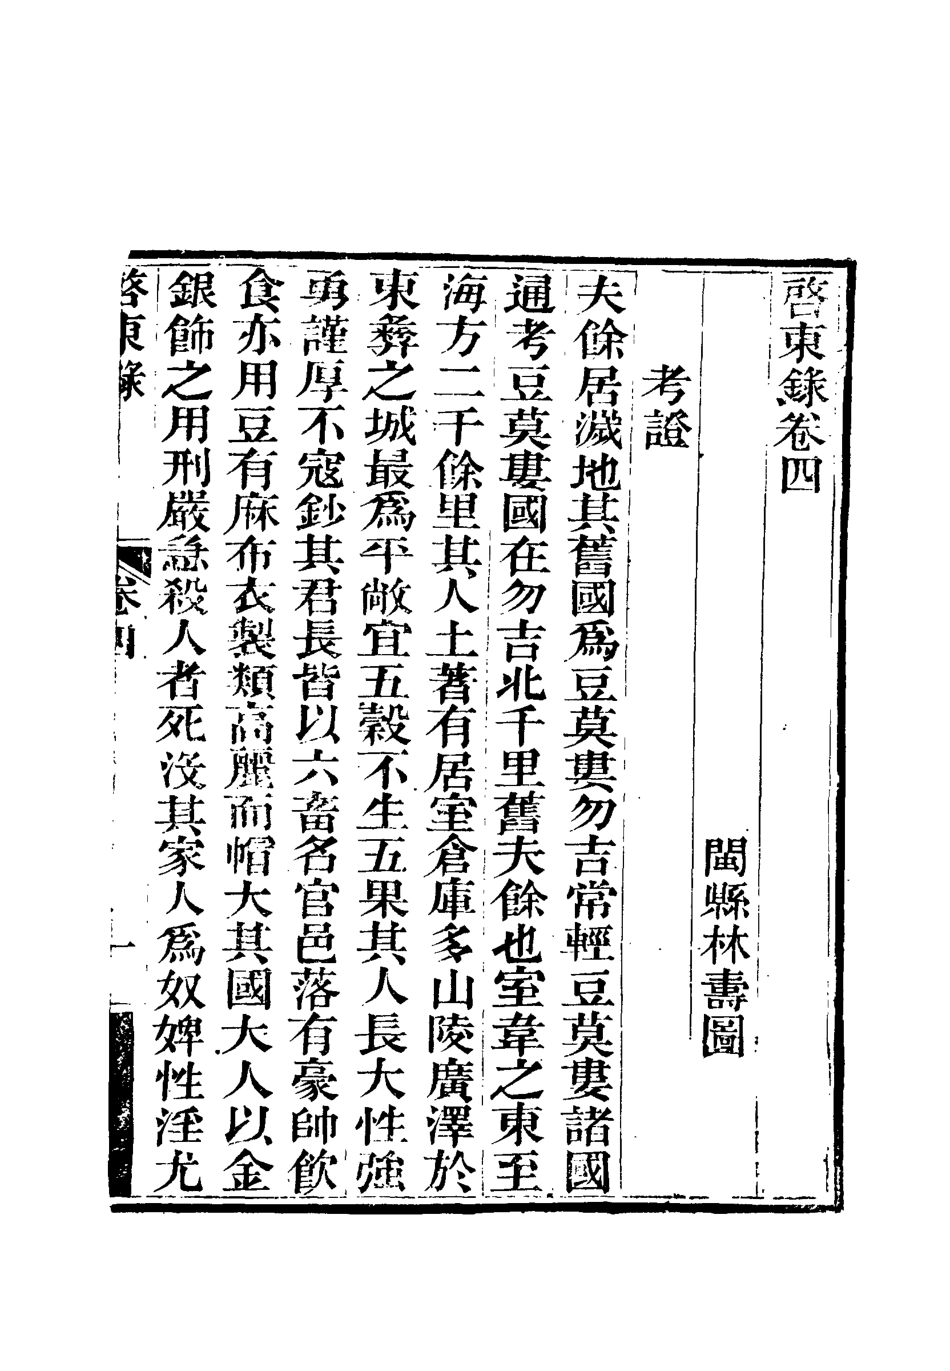 啓東錄卷四
閩縣林壽圖
考證
夫餘居濊地其舊國爲豆莫婁勿吉常輕豆莫婁諸國
通考豆莫婁國在勿吉北千里舊夫餘也室韋之東至
海方二千餘里其人土著有居室倉庫多山陵廣澤於
東彝之城最爲平敞宜五穀不生五果其人長大性強
勇謹厚不寇鈔其君長皆以六畜名官邑落有豪帥飮
食亦用豆有麻布衣製類高麗而帽大其國大人以金
銀飾之用刑嚴急殺人者死沒其家人爲奴婢性淫尤
啓東錄
卷四
一